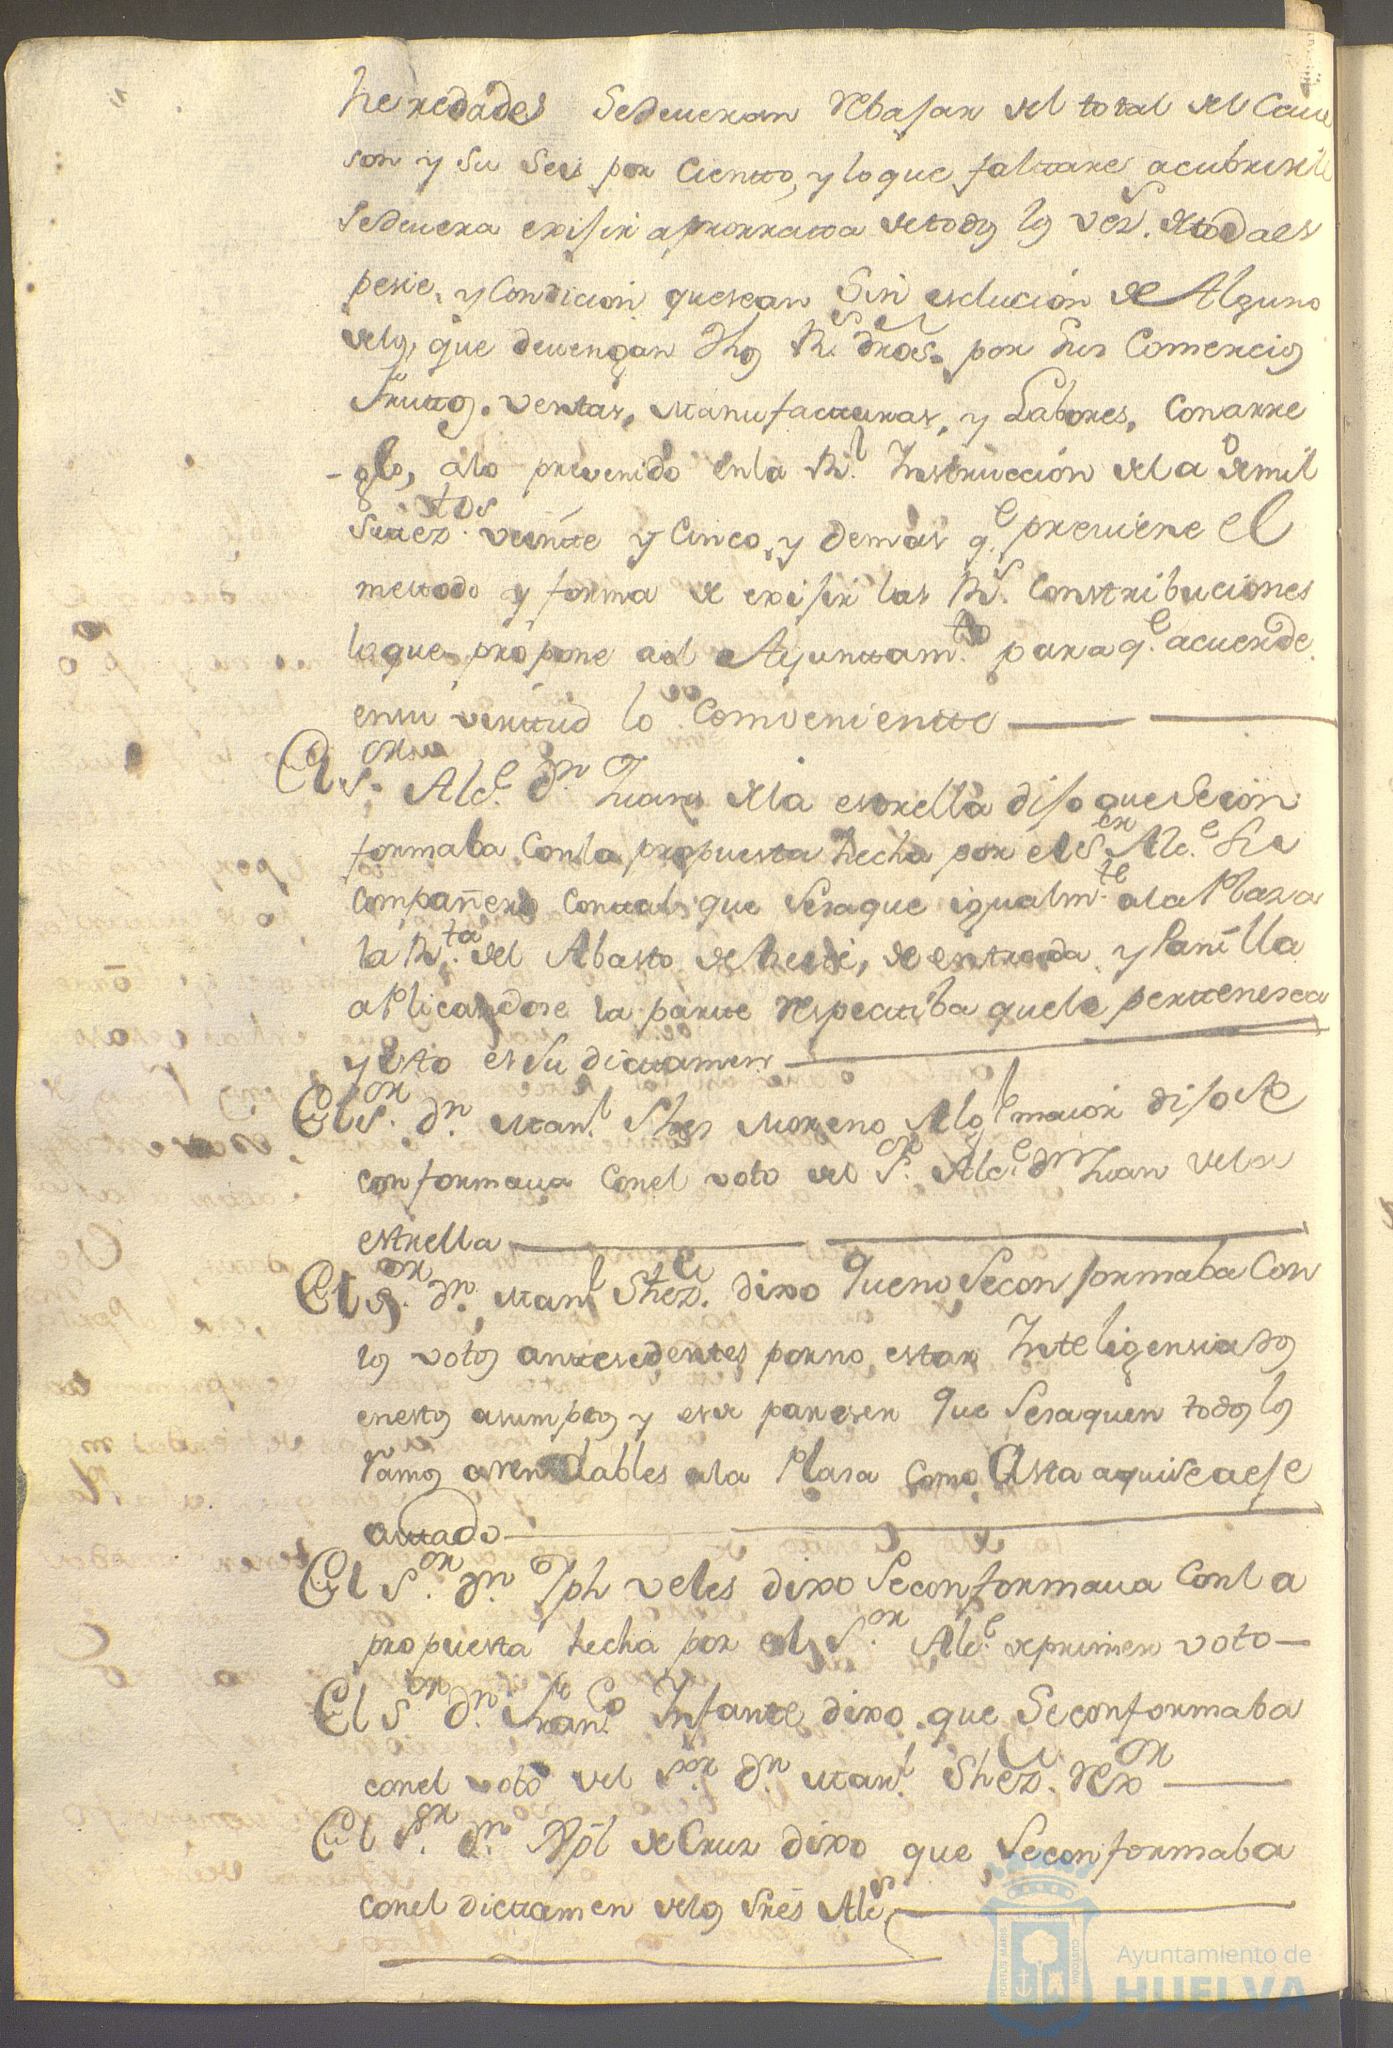 heredades Sedeueran rebajar del total del Caue
son y su Seis por Ciento, y lo que faltare acubrirle
Sedeuera exijir aprorrata detodos los vezs. detodaes
pesie, y Condicion quesean Sin esclución de Alguno
delos, que deuengan dhos Rs. dros. por sus Comercios
frutos, ventas, Manufacturas, y Labores, Conarre
glo, alo prevenido enla Rl. Instrucción dela demil
Seteztos. veinte y Cinco, y demas qe. preuiene el
metodo y forma de exijir las Rs. Constribuciones
loque propone aal Ayuntamto. paraqe. acuerde
ensu virttud lo Comveniente
El Sor. Alce. Dn. Juan dela estrella dijo queSecon
formaba Conla propuesta hecha por elSor. Alce. Su
compañero contal que Sesaque igualmte. ala Plaza
la Rta. del Abasto de de entrada y Panilla
aPlicandose la parte respectiba quele pertenesca
y esto es su dictamen
El Sor. Dn. Manl. Shes Moreno Algl. maior dijo Se
conformaua Conel voto del Sr. Alce. Dn Juan dela
estrella
El Sor. Dn. Manl. Shez. dixo Queno Secon formaba Con
los votos antesedentes porno estar Inteligensiados
enestos asumptos y esde pareser Que Sesaquen todos los
Ramos arendables ala Plasa como Asta aqui Se a ese
cutado
El Sor. Dn. Jph veles dixo Seconformaua Conla
propuesta hecha por el Sor. Alce. deprimer voto
El Sor. Dn. Franco. Infante dixo que Seconformaba
conel voto del Sor. Dn. Manl. Shez. Rexor
El Sor. Dn. Xptl deCruz dixo que Seconformaba
conel dictamen delos Sres Alces
Ayuntamiento de
HUELVA